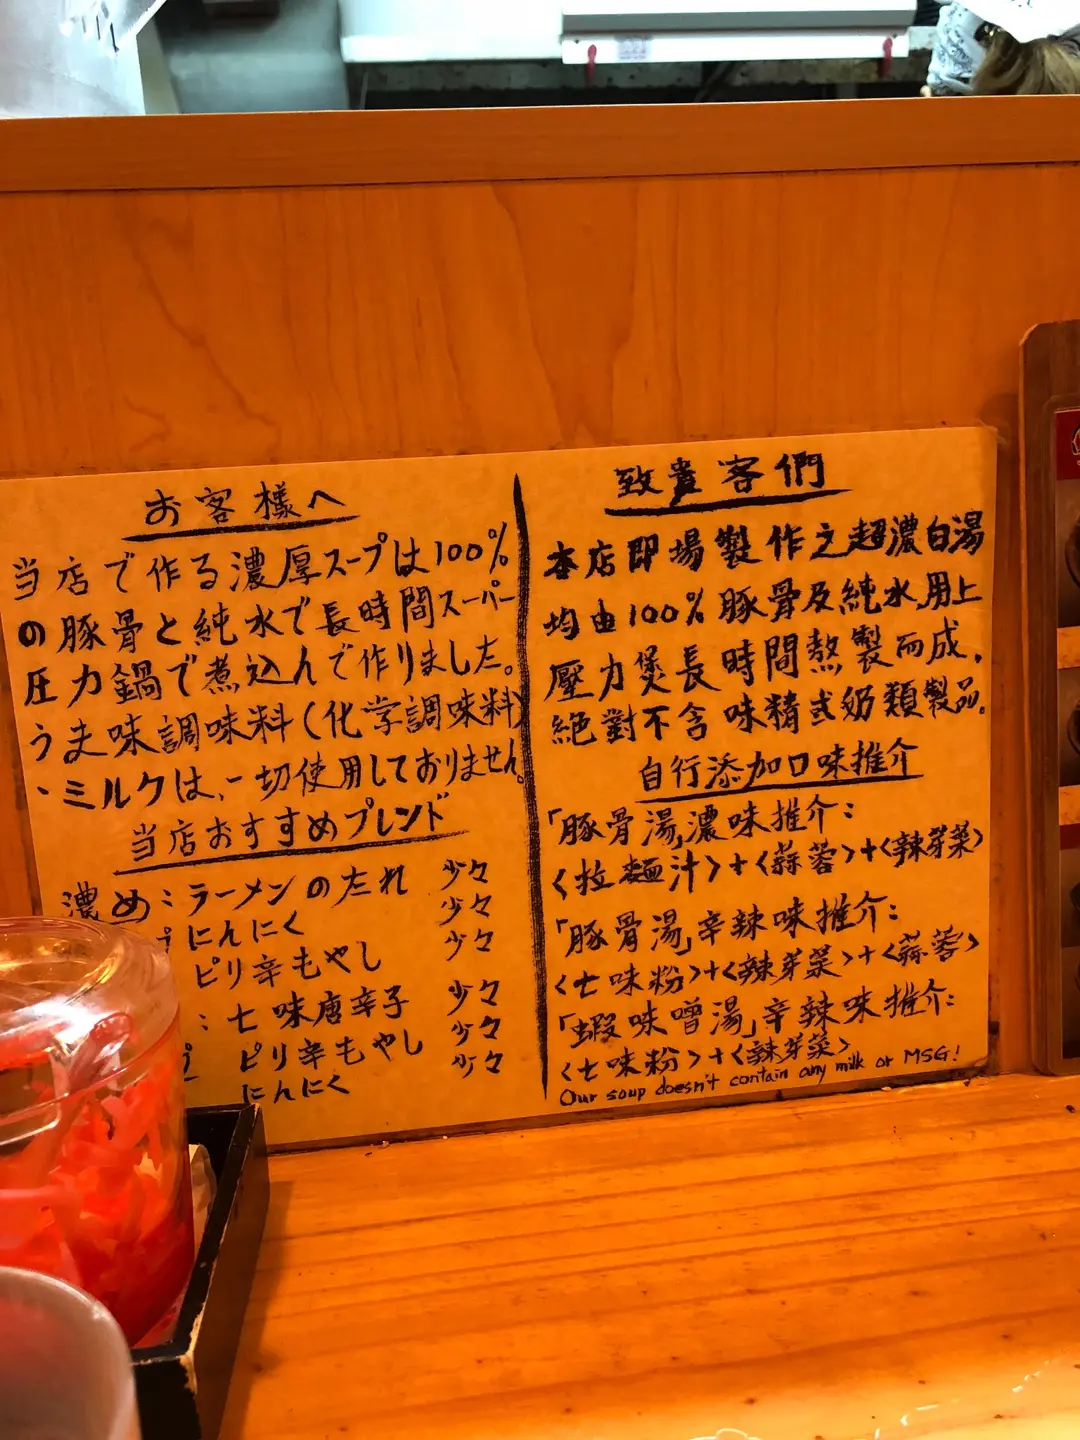 お客様へ
当店で作る濃厚スープは100%
の豚骨と純水で長時間スーパー
圧力鍋で煮込んで作りました。
うま味調味料(化学調味料)
・ミルクは、一切使用しておりません。
当店おすすめブレンド
濃め：ラーメンのたれ 少々
にんにく 少々
ピリ辛もやし 少々
：七味唐辛子 少々
ピリ辛もやし 少々
にんにく 少々
致貴客們
本店即場製作之超濃白湯
均由100%豚骨及純水,用上
壓力煲長時間熬製而成,
絕對不含味精或奶類製品。
自行添加口味推介
「豚骨湯」濃味推介：
<拉麵汁>+<蒜蓉>+<辣芽菜>
「豚骨湯」辛辣味推介：
<七味粉>+<辣芽菜>+<蒜蓉>
「蝦味噌湯」辛辣味推介：
<七味粉>+<辣芽菜>
Our soup doesn't contain any milk or MSG!